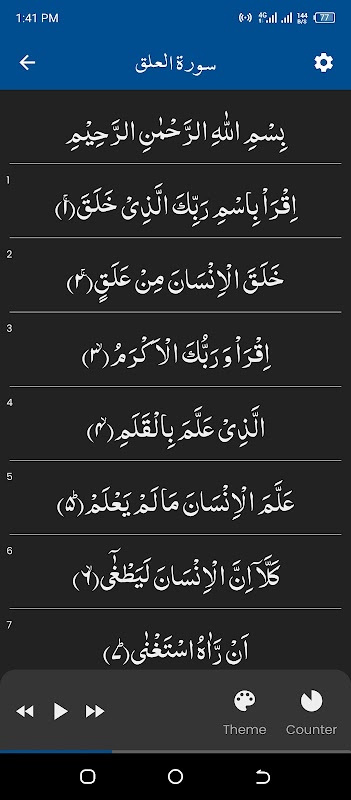 1:41 PM 4G 144 B/S 77
سورة العلق
بِسْمِ اللهِ الرَّحْمٰنِ الرَّحِيْمِ
1
اِقْرَاْ بِاسْمِ رَبِّكَ الَّذِیْ خَلَقَ(۱)
2
خَلَقَ الْاِنْسَانَ مِنْ عَلَقٍ(۲)
3
اِقْرَاْ وَ رَبُّكَ الْاَكْرَمُ(۳)
4
الَّذِیْ عَلَّمَ بِالْقَلَمِ(۴)
5
عَلَّمَ الْاِنْسَانَ مَا لَمْ یَعْلَمْ(۵)
6
كَلَّاۤ اِنَّ الْاِنْسَانَ لَیَطْغٰۤى(۶)
7
اَنْ رَّاٰهُ اسْتَغْنٰى(۷)
Theme Counter